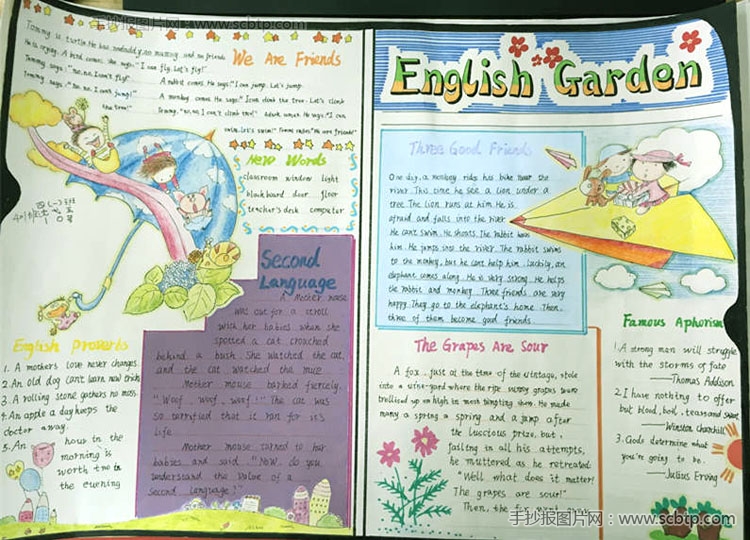 手抄报图片网：www.scbtp.com
We Are Friends
Tommy is turtle. He has nodaddy, no mummy and no friends
He is crying. A bird comes. She says: "I can fly. Let's fly!"
Tommy says: "No, no, I can't fly!" A rabbit comes. He says: "I can jump. Let's jump.
Tommy says: "No, no, I can't jump!" A monkey comes. He says: "I can climb the tree. Let's climb
the tree!" Tommy: "No, no, I can't climb tree!" A duck comes. He says: "I can
swim. Let's swim!"
New Words
classroom window light
blackboard door floor
teacher's desk computer
Second
Language
A Mother mouse
was out for a stroll
with her babies when she
spotted a cat crouched
behind a bush. She watched the cat,
and the cat watched the mice
Mother mouse barked fiercely.
"Woof, woof, woof!" The cat was
so terrified that it ran for it's
life
Mother mouse turned to her
babies and said. "Now, do you
understand the value of a
second language?"
English Proverbs
1. A mothers love never changes.
2. An old dog can't learn new tricks
3. A rolling stone gathers no moss.
4. An apple a day keeps the
doctor away.
5. An hour in the
morning is
worth two in
the evening
English Garden
Three Good Friends
One day, a monkey rids his bike near the
river. This time he see a lion under a
tree. The lion runs at him. He is
afraid and falls into the river.
He can't swim. He shouts. The rabbit hears
him. He jumps into the river. The rabbit swims
to the monkey, but he can't help him. Luckily, an
elephant comes along. He is very strong. He helps
the rabbit and monkey. Three friends are very
happy. They go to the elephant's home. Then,
three of them become good friends.
The Grapes Are Sour
A fox, just at the time of the vintage, stole
into a vine-yard where the ripe sunny grapes were
trellised up on high in most tempting show. He made
many a spring a spring and a jump after
the luscious prize, but,
failing in all his attempts,
he muttered as he retreated
"Well what does it matter!
The grapes are sour!"
Then, the
Famous Aphorism
1. A strong man will struggle
with the storms of fate
——Thomas Addison
2. I have nothing to offer
but blood, boil, tears and sweat
——Winston Churchill
3. Gods determine what
you're going to be.
——Julius Erving
手抄报图片网：www.scbtp.com